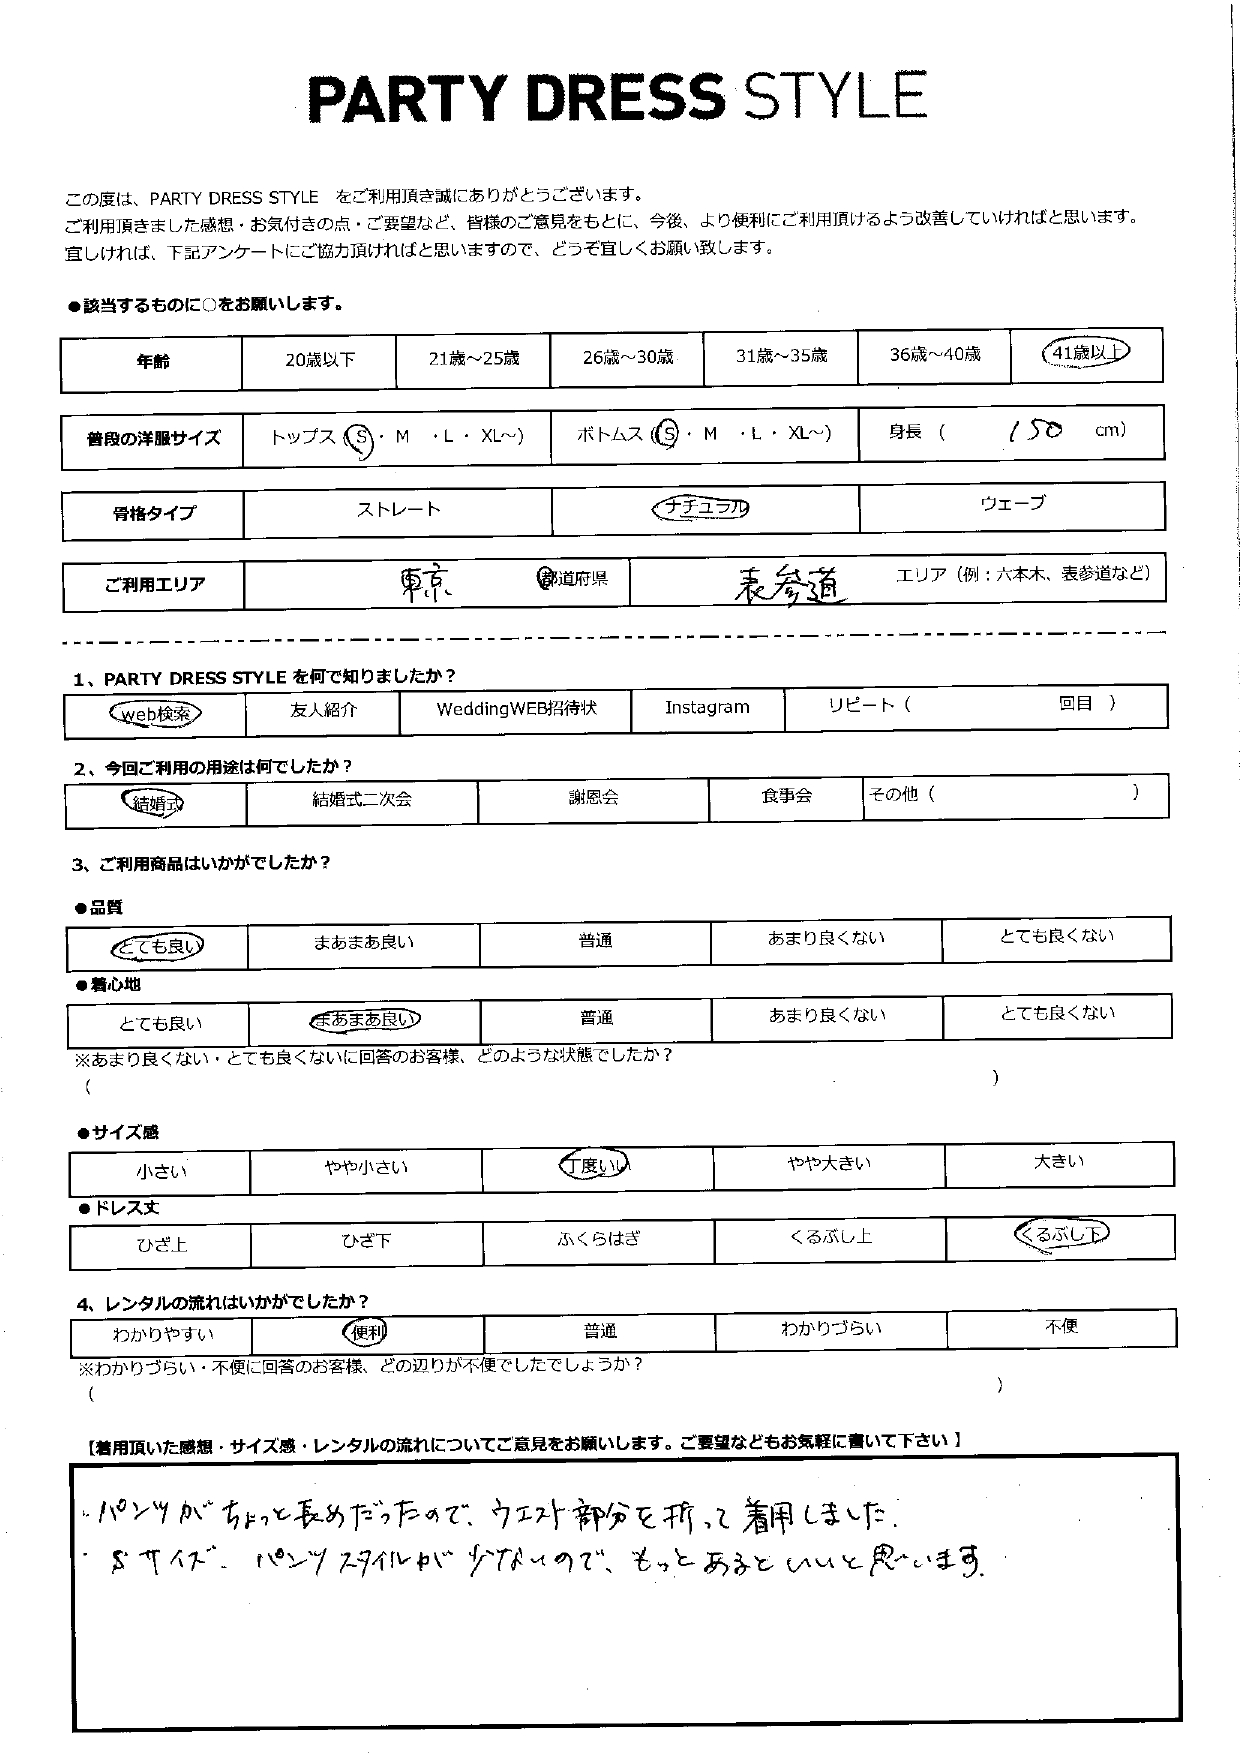 PARTY DRESS STYLE
この度は、PARTY DRESS STYLE をご利用頂き誠にありがとうございます。
ご利用頂きました感想・お気付きの点・ご要望など、皆様のご意見をもとに、今後、より便利にご利用頂けるよう改善していければと思います。
宜しければ、下記アンケートにご協力頂ければと思いますので、どうぞ宜しくお願い致します。
●該当するものに○をお願いします。
年齢 20歳以下 21歳～25歳 26歳～30歳 31歳～35歳 36歳～40歳 41歳以上
普段の洋服サイズ トップス (S・ M ・L ・ XL～) ボトムス (S・ M ・L ・ XL～) 身長 ( 150 cm)
骨格タイプ ストレート ナチュラル ウェーブ
ご利用エリア 東京 都道府県 表参道 エリア（例：六本木、表参道など）
1、PARTY DRESS STYLE を何で知りましたか？
web検索 友人紹介 WeddingWEB招待状 Instagram リピート ( 回目 )
2、今回ご利用の用途は何でしたか？
結婚式 結婚式二次会 謝恩会 食事会 その他 ( )
3、ご利用商品はいかがでしたか？
●品質
とても良い まあまあ良い 普通 あまり良くない とても良くない
●着心地
とても良い まあまあ良い 普通 あまり良くない とても良くない
※あまり良くない・とても良くないに回答のお客様、どのような状態でしたか？
( )
●サイズ感
小さい やや小さい 丁度いい やや大きい 大きい
●ドレス丈
ひざ上 ひざ下 ふくらはぎ くるぶし上 くるぶし下
4、レンタルの流れはいかがでしたか？
わかりやすい 便利 普通 わかりづらい 不便
※わかりづらい・不便に回答のお客様、どの辺りが不便でしたでしょうか？
( )
【着用頂いた感想・サイズ感・レンタルの流れについてご意見をお願いします。ご要望などもお気軽に書いて下さい 】
・パンツが ちょっと長めだったので、ウエスト部分を折って着用しました.
・Sサイズ、パンツスタイルが 少ないので、もっとあるといいと思います.